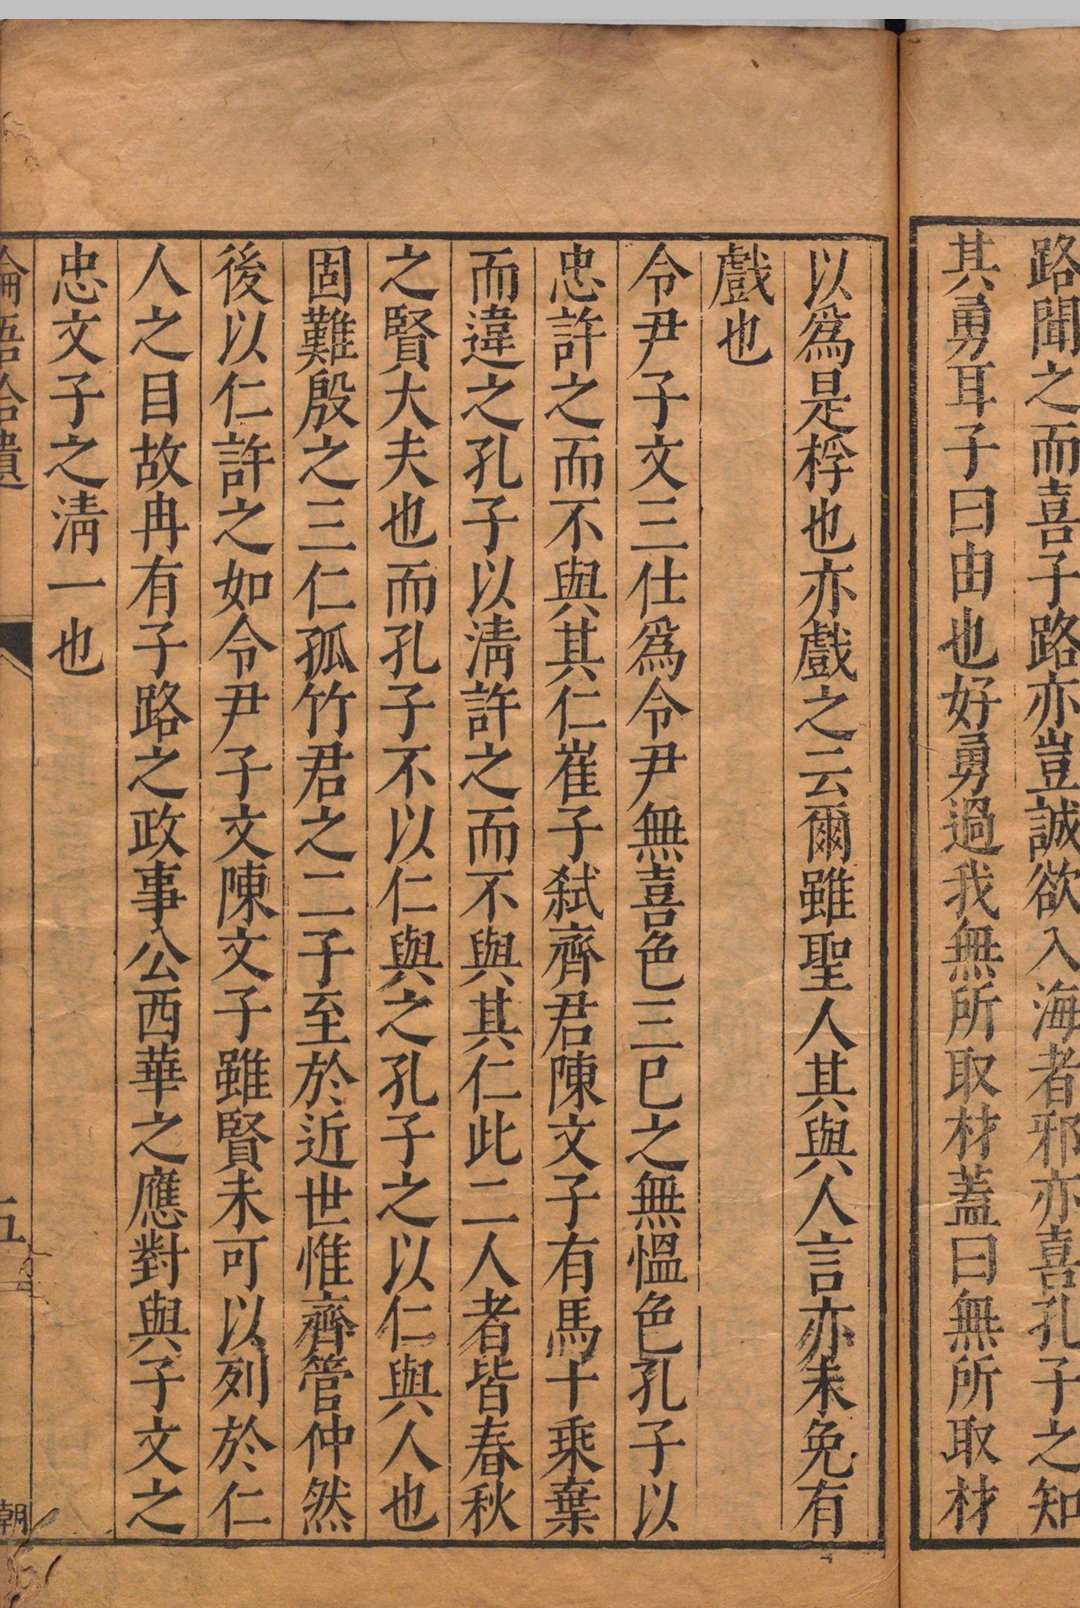 路聞之而喜子路亦豈誠欲入海者邪亦喜孔子之知
其勇耳子曰由也好勇過我無所取材蓋曰無所取材
以爲是桴也亦戲之云爾雖聖人其與人言亦未免有
戲也
令尹子文三仕爲令尹無喜色三巳之無慍色孔子以
忠許之而不與其仁崔子弑齊君陳文子有馬十乘棄
而違之孔子以淸許之而不與其仁此二人者皆春秋
之賢大夫也而孔子不以仁與之孔子之以仁與人也
固難殷之三仁孤竹君之二子至於近世惟齊管仲然
後以仁許之如令尹子文陳文子雖賢未可以列於仁
人之目故冉有子路之政事公西華之應對與子文之
忠文子之淸一也
論語拾遺
五
朝